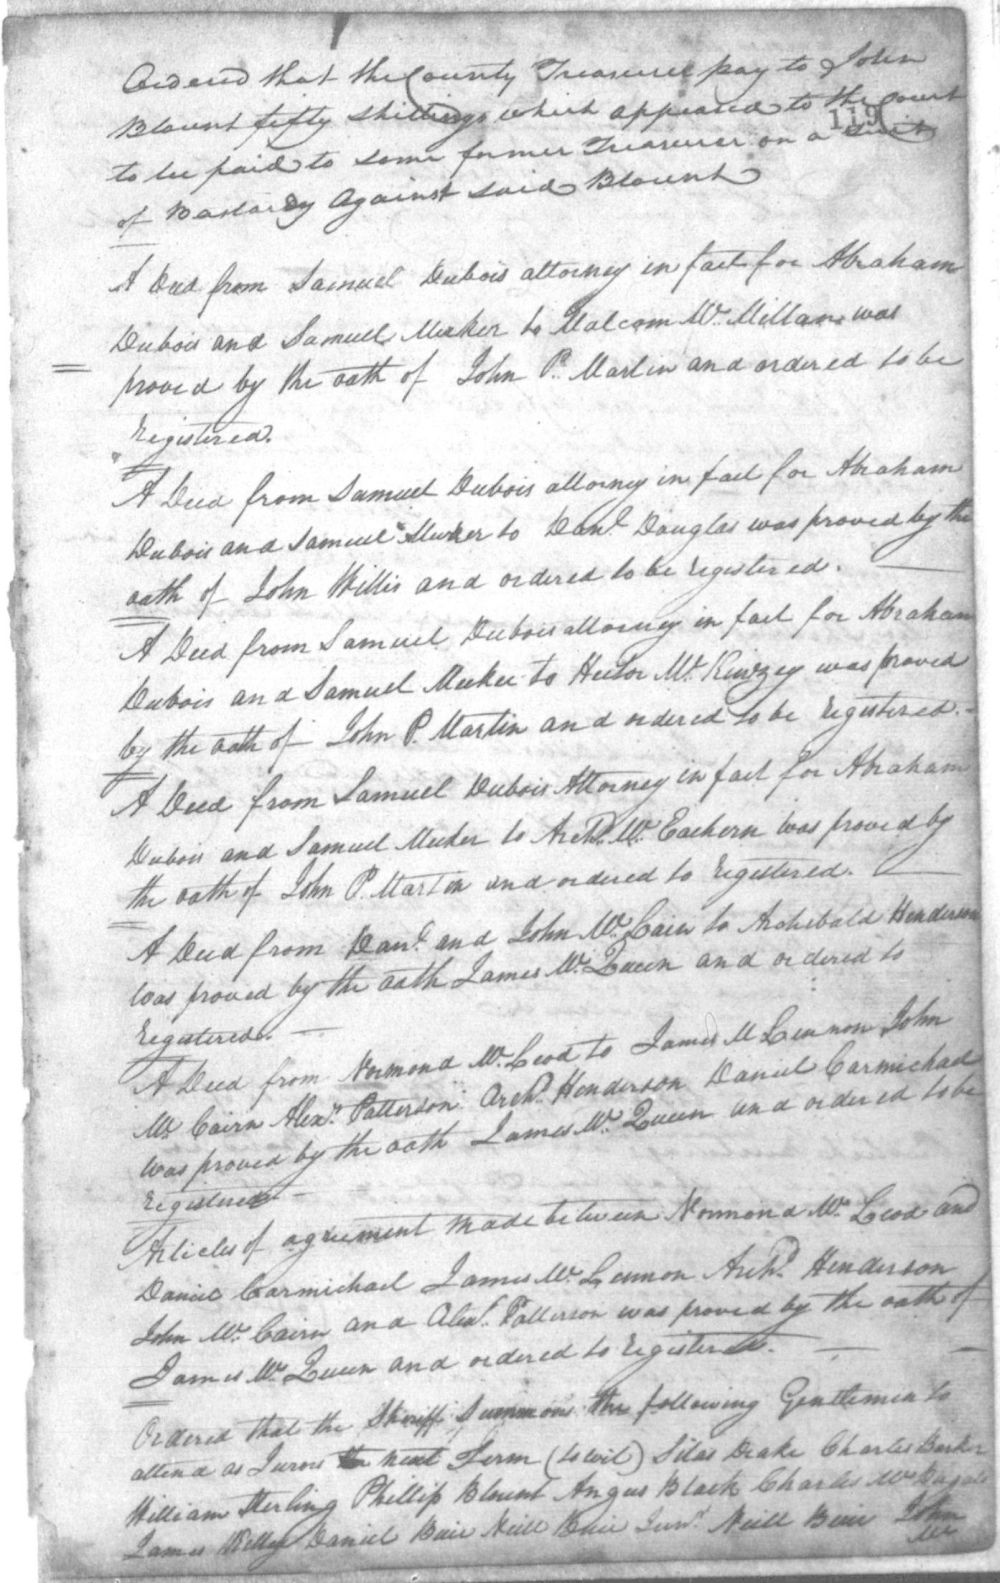 Ordered that the County Treasurer pay to John
Blount fifty shillings which appeared to the Court
119
to be paid to some former Treasurer on a Suit
of Bastardy Against said Blount
A Deed from Samuel Dubois attorney in fact for Abraham
Dubois and Samuel Meeker to Malcom Mc. Millan was
proved by the oath of John P. Martin and ordered to be
Registered.
A Deed from Samuel Dubois attorney in fact for Abraham
Dubois and Samuel Meeker to Danl. Douglas was proved by the
oath of John Willis and ordered to be registered.
A Deed from Samuel Dubois attorney in fact for Abraham
Dubois and Samuel Meeker to Hector Mc. Kinzey was proved
by the oath of John P. Martin and ordered to be registered.
A Deed from Samuel Dubois Attorney in fact for Abraham
Dubois and Samuel Meeker to Archd. Mc. Eachern was proved by
the oath of John P. Martin and ordered to registered.
A Deed from Danl. and John Mc. Cairn to Archibald Henderson
was proved by the oath James Mc. Queen and ordered to
registered.
A Deed from Normond Mc. Leod to James M Lennon John
Mc Cairn Alexr. Patterson Archd. Henderson Daniel Carmichael
was proved by the oath James Mc. Queen and ordered to be
registered
Articles of agreement made between Normond Mc. Leod and
Daniel Carmichael James Mc. Lennon Archd. Henderson
John Mc. Cairn and Alexr. Patterson was proved by the oath of
James Mc. Queen and ordered to registered.
Ordered that the Sheriff Summons the following Gentlemen to
attend as Jurors next Term (to wit) Silas Drake Charles Barker
William Sterling Phillip Blount Angus Black Charles Mc
James Daniel Buie Neill Buie Junr. Neill Buie John
Mc